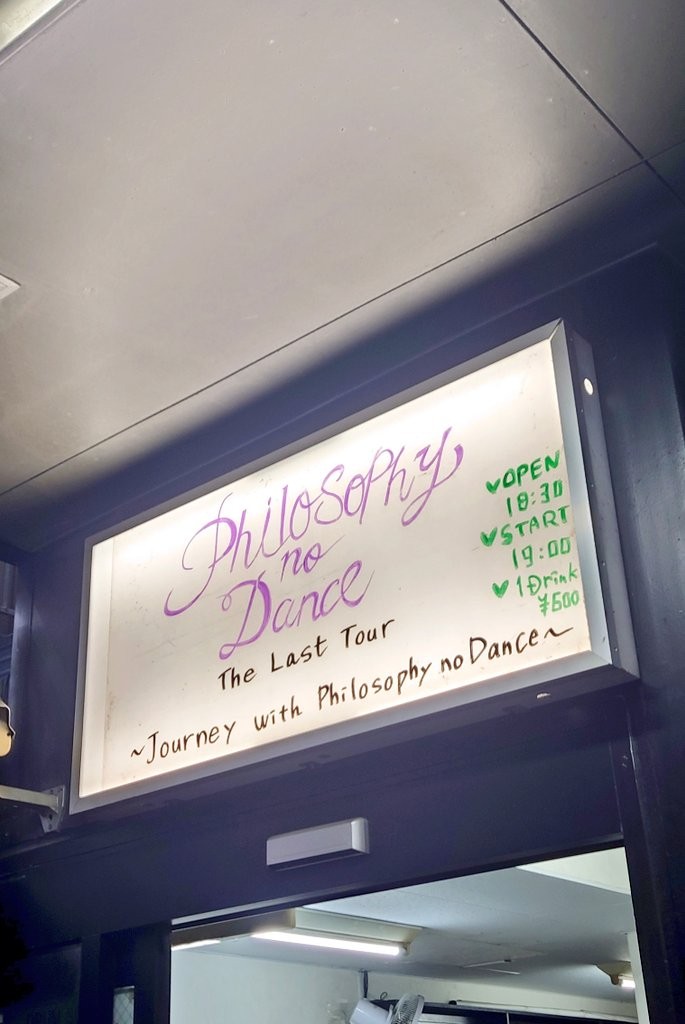 Philosophy
no
Dance
The Last Tour
~Journey with Philosophy no Dance~
♥OPEN
18:30
♥START
19:00
♥1Drink
¥600